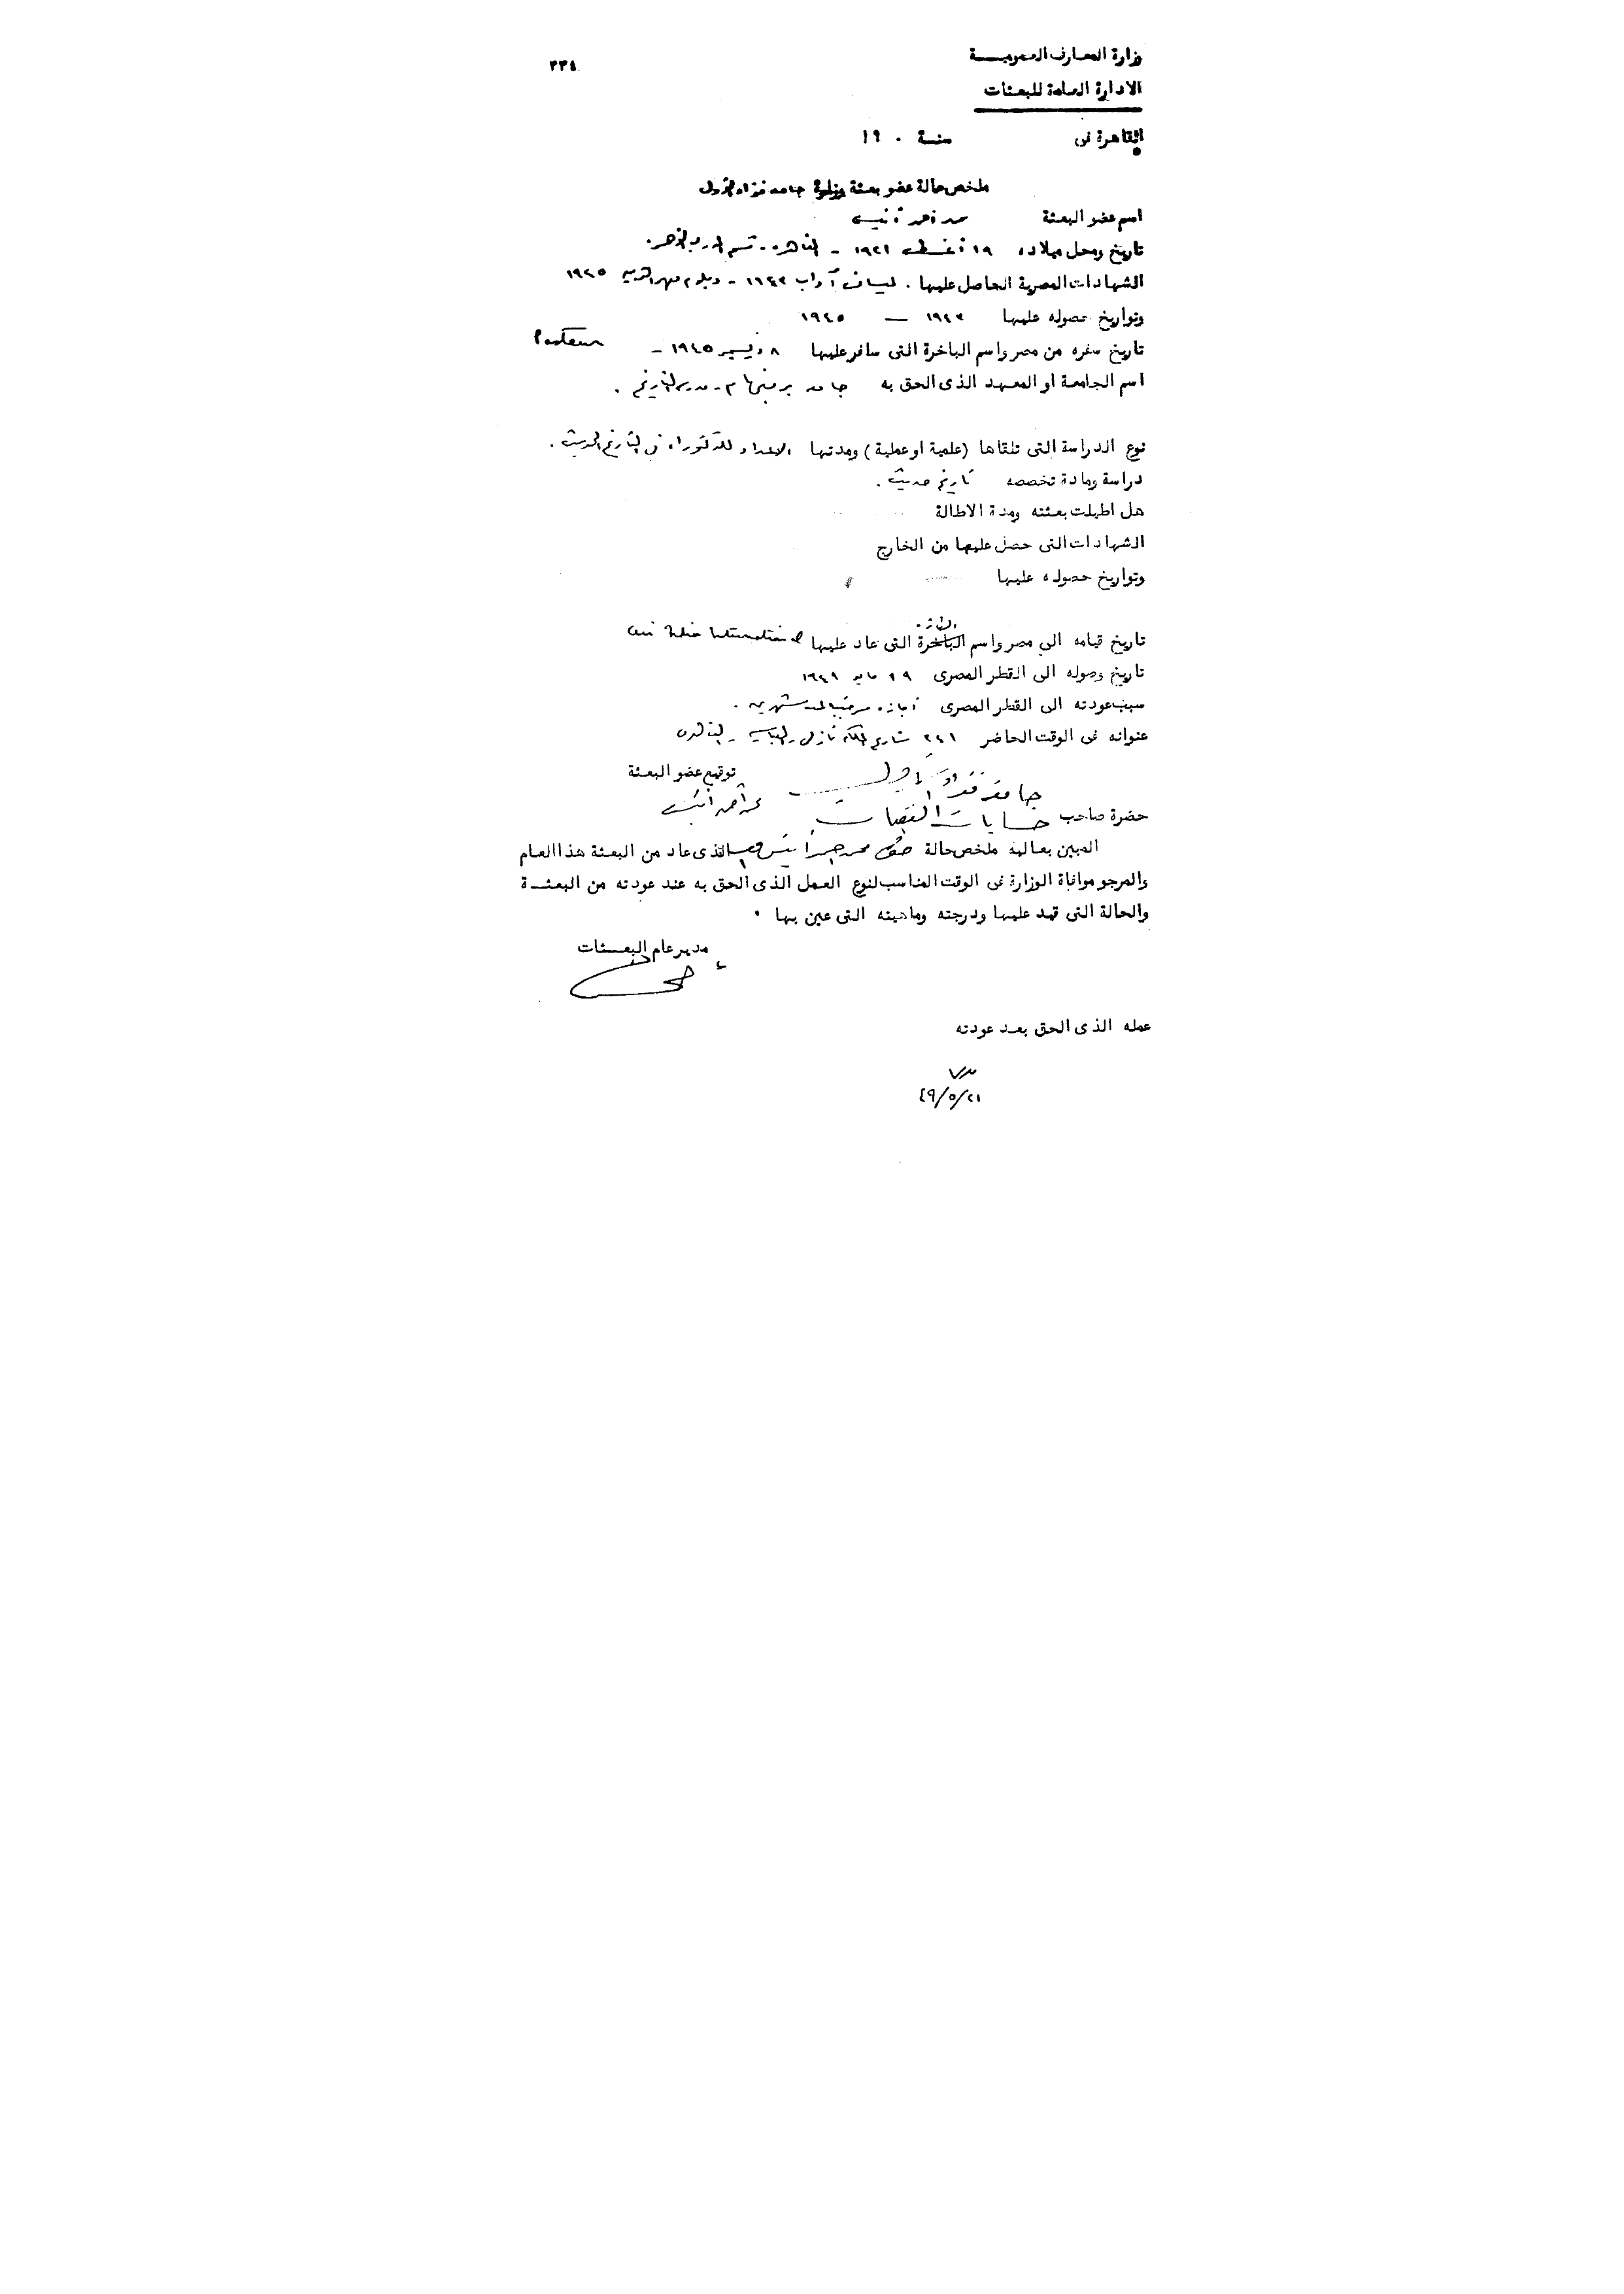 ٣٣٤
وزارة المعارف العمومية
الادارة العامة للبعثات
القاهرة فى سنة ١٩٠
ملخص حالة عضو بعثة وزارة جامعة فؤاد الأول
اسم عضو البعثة محمد أحمد أنيس
تاريخ ومحل ميلاده ١٩ أغسطس ١٩٢١ - القاهرة - قسم الدرب الأحمر
الشهادات المصرية الحاصل عليها . ليسانس آداب ١٩٤٣ - دبلوم معهد التربية ١٩٤٥
وتواريخ حصوله عليها ١٩٤٣ — ١٩٤٥
تاريخ سفره من مصر واسم الباخرة التى سافر عليها ٨ ديسمبر ١٩٤٥ - Pasteur
اسم الجامعة او المعهد الذى الحق به جامعة برمنجهام - مدرسة التاريخ .
نوع الدراسة التى تلقاها (علمية او عملية) ومدتها الاعداد للدكتوراه فى التاريخ الحديث .
دراسة ومادة تخصصه تاريخ حديث .
هل اطيلت بعثته ومدة الاطالة
الشهادات التى حصل عليها من الخارج
وتواريخ حصوله عليها
الطائرة
تاريخ قيامه الى مصر واسم الباخرة التى عاد عليها
تاريخ وصوله الى القطر المصرى ١٩ مايو ١٩٤٩
سبب عودته الى القطر المصرى أجازة مرضية لمدة شهرين .
عنوانه فى الوقت الحاضر ٢٤١ شارع الملكة نازلى - العباسية - القاهرة
توقيع عضو البعثة
جامعة فؤاد الأول
محمد أحمد أنيس
حضرة صاحب حسابات النفقات
المبين بعاليه ملخص حالة محمد أنيس الذى عاد من البعثة هذا العام
والمرجو موافاة الوزارة فى الوقت المناسب لنوع العمل الذى الحق به عند عودته من البعثة
والحالة التى قيد عليها ودرجته وماهيته التى عين بها .
مدير عام البعثات
عمله الذى الحق بعد عودته
٤٩/٥/٢١